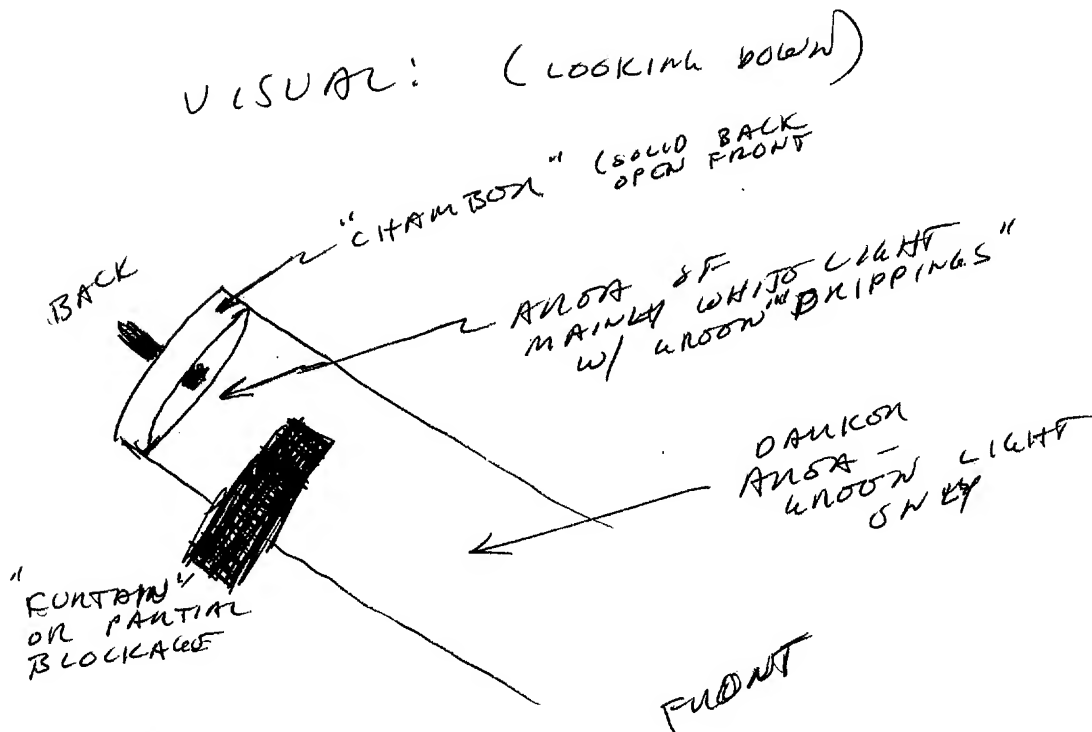 VISUAL: (LOOKING DOWN)
"CHAMBER" (SOLID BACK
OPEN FRONT
BACK
AREA OF
MAINLY WHITE LIGHT
W/ GREEN "DRIPPINGS"
DARKER
AREA -
GREEN LIGHT
ONLY
"CURTAIN"
OR PARTIAL
BLOCKAGE
FRONT